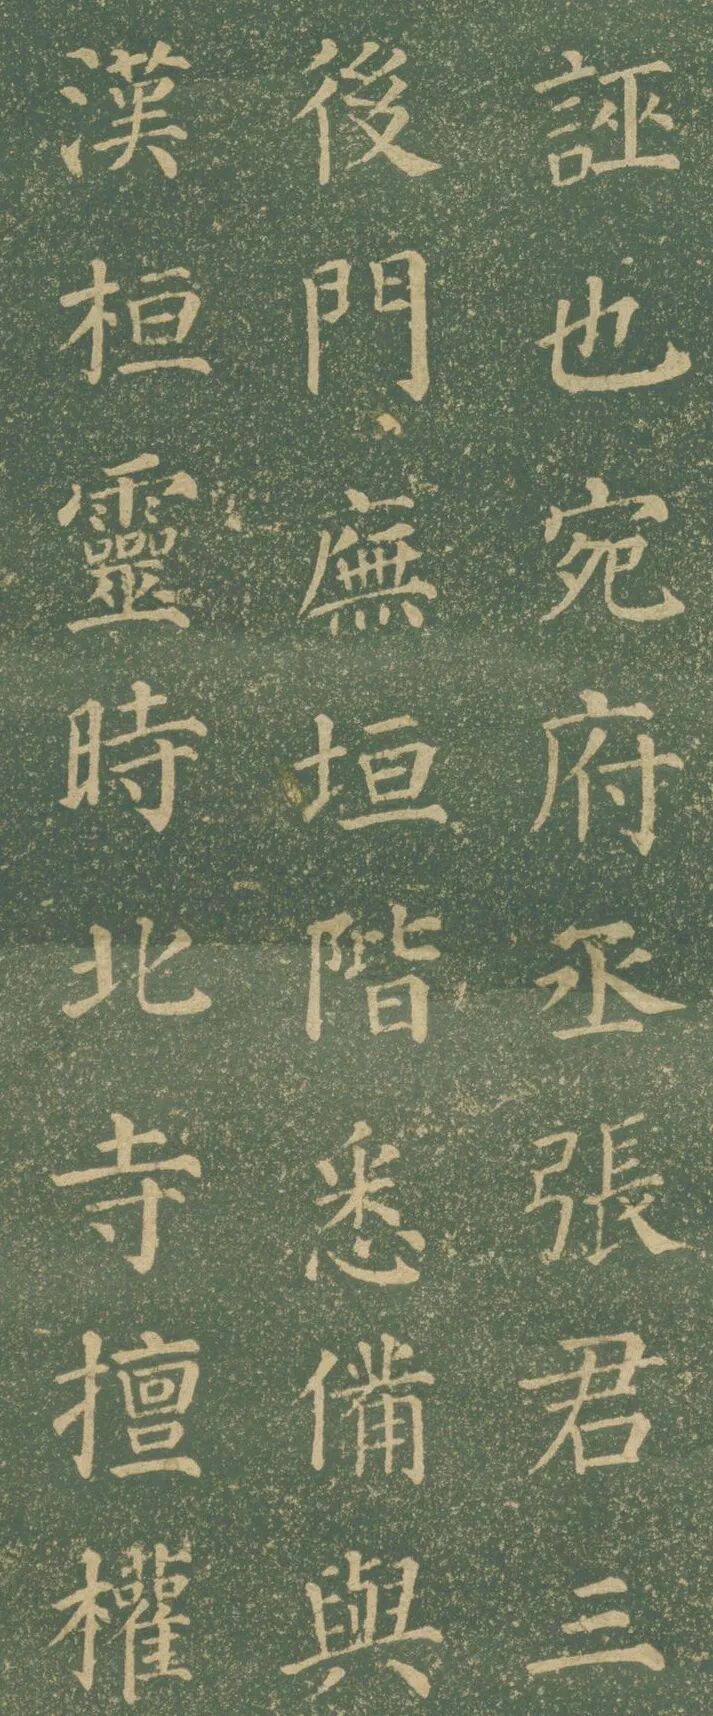 誣也宛府丞張君三
後門廡垣階悉備與
漢桓靈時北寺擅權